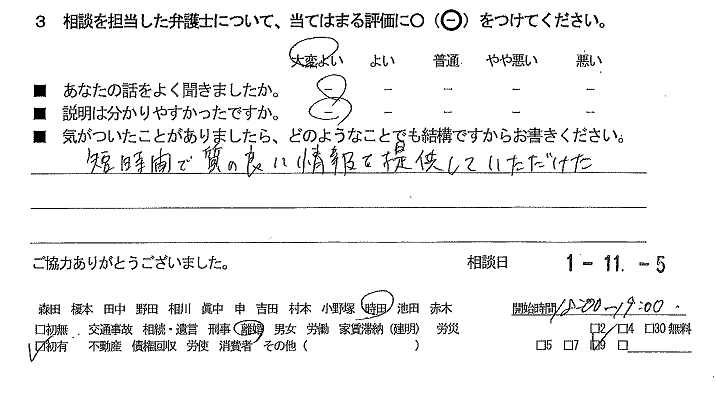 3 相談を担当した弁護士について、当てはまる評価に○(⊖)をつけてください。
大変よい よい 普通 やや悪い 悪い
■ あなたの話をよく聞きましたか。 － － － － －
■ 説明は分かりやすかったですか。 － － － － －
■ 気がついたことがありましたら、どのようなことでも結構ですからお書きください。
短時間で質の良い情報を提供していただけた
ご協力ありがとうございました。 相談日 1-11.-5
森田 榎本 田中 野田 相川 眞中 申 吉田 村本 小野塚 時田 池田 赤木 開始時間 18:00-19:00
□初無 交通事故 相続・遺言 刑事 離婚 男女 労働 家賃滞納(建明) 労災 □2 □4 □30無料
□初有 不動産 債権回収 労使 消費者 その他( ) □5 □7 □9 □